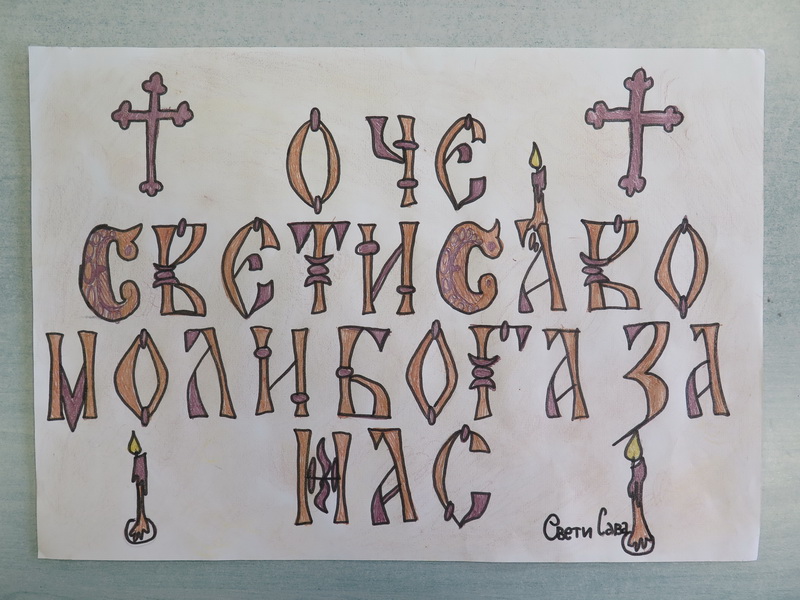 ОЧЕ
СВЕТИ САВО
МОЛИ БОГА ЗА
НАС
Свети Сава